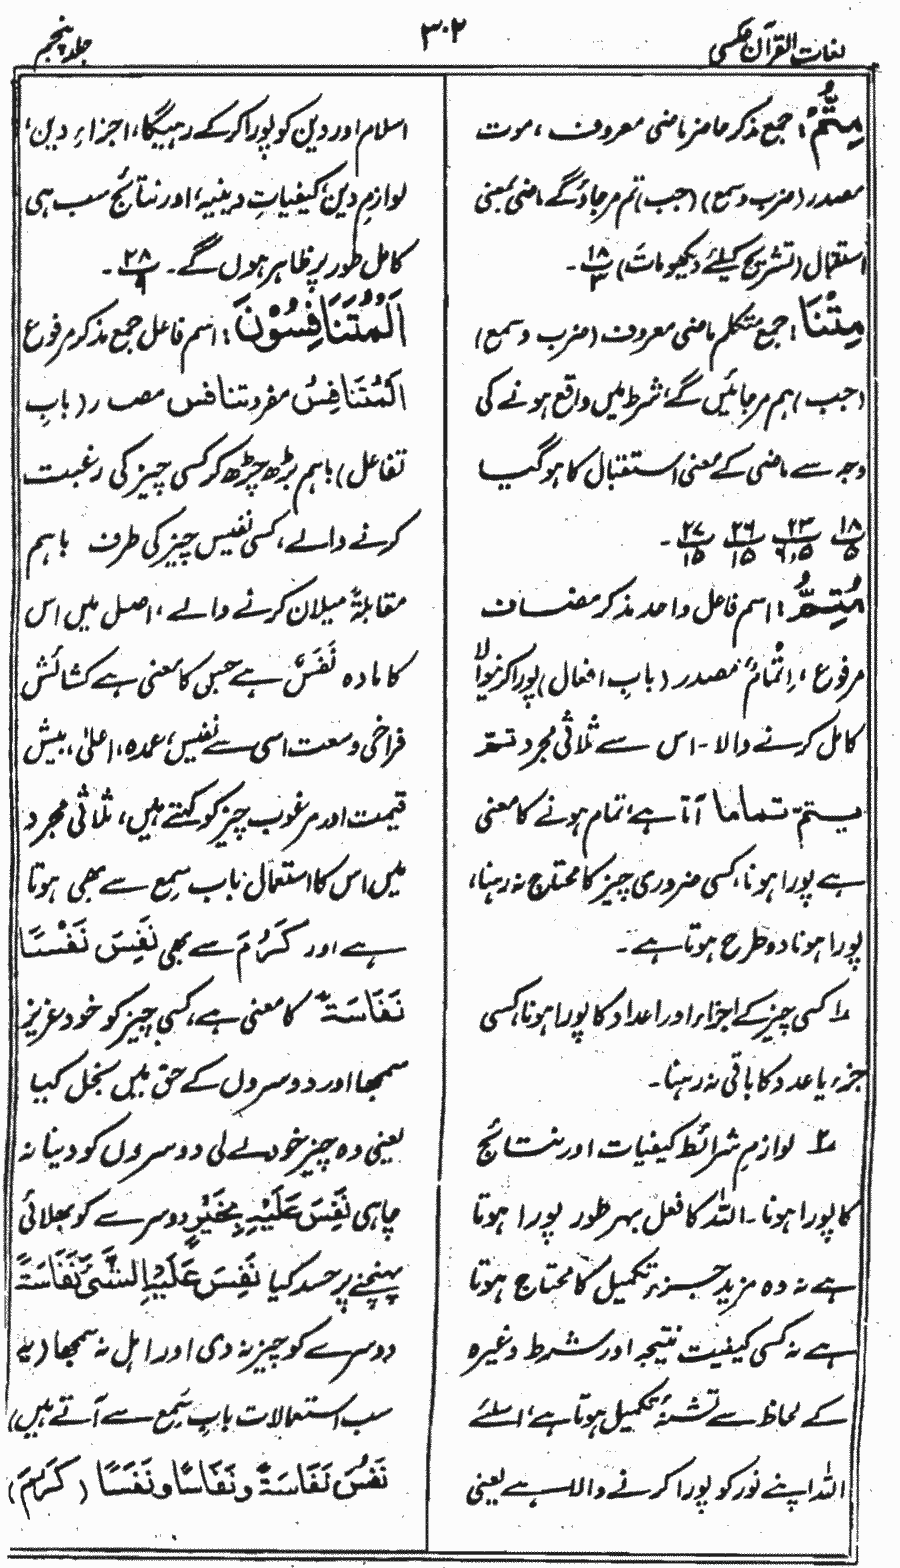 لغات القرآن عکسی
۳۰۲
جلد پنجم
مِتُّمْ: جمع مذکر حاضر ماضی معروف، موت
مصدر (ضرب و سمع) (جب) تم مر جاؤ گے ماضی بمعنی
استقبال (تشریح کیلئے دیکھو مَاتَ) ۱۸/۳ -
مِتْنَا: جمع متکلم ماضی معروف (ضرب و سمع)
(جب) ہم مر جائیں گے، شرط میں واقع ہونے کی
وجہ سے ماضی کے معنی استقبال کا ہو گیا
۱۸/۵ ۲۳/۹،۵ ۲۶/۱۵ ۲۷/۱۵ -
مُتِمُّ: اسم فاعل واحد مذکر مضاف
مرفوع، اِتْمَامٌ مصدر (بابِ افعال) پورا کرنیوالا
کامل کرنے والا - اس سے ثلاثی مجرد تمّ
یتمّ تماما آتا ہے، تمام ہونے کا معنی
ہے پورا ہونا، کسی ضروری چیز کا محتاج نہ رہنا،
پورا ہونا دو طرح ہوتا ہے -
۱ کسی چیز کے اجزاء اور اعداد کا پورا ہونا، کسی
جزء یا عدد کا باقی نہ رہنا -
۲ لوازمِ شرائط کیفیات اور نتائج
کا پورا ہونا - اللہ کا فعل بہر طور پورا ہوتا
ہے نہ وہ مزید جزء تکمیل کا محتاج ہوتا
ہے نہ کسی کیفیت نتیجہ اور شرط وغیرہ
کے لحاظ سے تشنۂ تکمیل ہوتا ہے، اسلئے
اللہ اپنے نور کو پورا کرنے والا ہے یعنی
اسلام اور دین کو پورا کر کے رہیگا، اجزاءِ دین،
لوازمِ دین، کیفیاتِ دینیہ، اور نتائج سب ہی
کامل طور پر ظاہر ہوں گے - ۲۸/۹ -
اَلْمُتَنَافِسُوْنَ: اسم فاعل جمع مذکر مرفوع
اَلْمُتَنَافِسُ مفرد تنافس مصدر (بابِ
تفاعل) باہم بڑھ چڑھ کر کسی چیز کی رغبت
کرنے والے، کسی نفیس چیز کی طرف باہم
مقابلۃً میلان کرنے والے، اصل میں اس
کا مادہ نَفَسٌ ہے جس کا معنی ہے کشائش
فراخی وسعت اسی سے نفیس، عمدہ، اعلیٰ، بیش
قیمت اور مرغوب چیز کو کہتے ہیں، ثلاثی مجرد
میں اس کا استعمال باب سَمِع سے بھی ہوتا
ہے اور کَرُمَ سے بھی نَفِسَ نَفْسًا
نَفَاسَۃً کا معنی ہے، کسی چیز کو خود عزیز
سمجھا اور دوسروں کے حق میں بخل کیا
یعنی وہ چیز خود لے لی دوسروں کو دینا نہ
چاہی نَفِسَ عَلَیْہِ بِخَیْرٍ دوسرے کو بھلائی
پہنچنے پر حسد کیا نَفِسَ عَلَیْہِ الشَّیْءَ نَفَاسَۃً
دوسرے کو چیز نہ دی اور اہل نہ سمجھا (یہ
سب استعمالات بابِ سَمِعَ سے آتے ہیں)
نَفُسَ نَفَاسَۃً و نَفَاسًا و نَفَسًا (کَرُمَ)